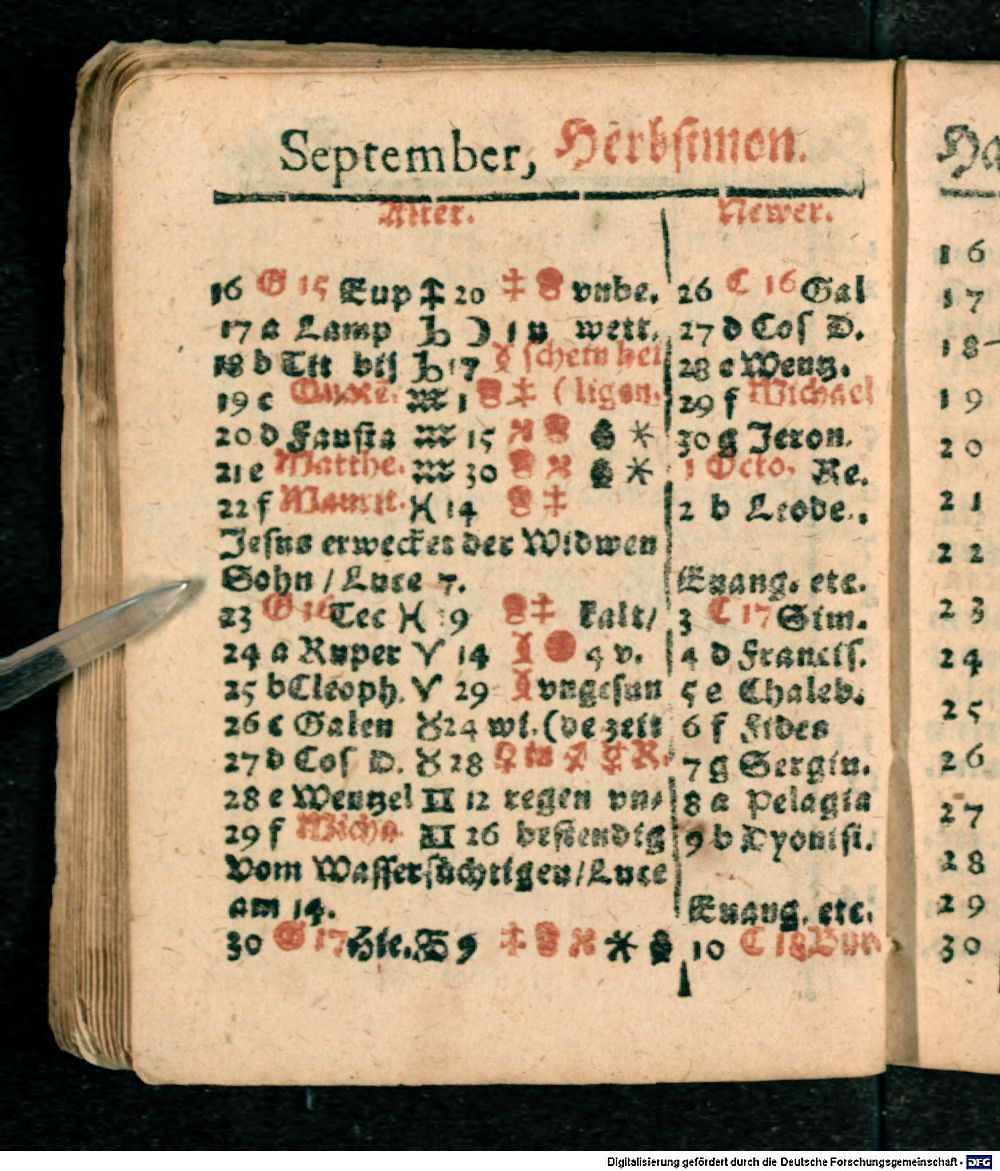 September, Herbstmon.
Alter. Newer.
16 G 15 Eup ♐ 20 ‡ vnbe. 26 C 16 Gal
17 a Lamp ♑ ☽ 1 n wett. 27 d Cos D.
18 b Tit bis ♑ 17 schein hei 28 e Wentz.
19 c ♒ 1 ‡ (ligen. 29 f Michael
20 d Fausta ♒ 15 * 30 g Jeron.
21 e Matthe. ♒ 30 * 1 Octo. Re.
22 f Maurit. ♓ 14 ‡ 2 b Leode.
Jesus erwecket der Widwen
Sohn / Luce 7. Euang. etc.
23 G 16 Tec ♓ 29 ‡ kalt/ 3 C 17 Sim.
24 a Ruper ♈ 14 4 v. 4 d Francis.
25 b Cleoph. ♈ 29 vngesun 5 e Chaleb.
26 c Galen ♉ 24 wi. (de zeit 6 f Fides
27 d Cos D. ♉ 28 ♀ in ♐ ☿ R. 7 g Sergin.
28 e Wentzel ♊ 12 regen vn/ 8 a Pelagia
29 f Micha ♊ 26 bestendig 9 b Dyonisi.
Vom Wassersüchtigen/Luce
am 14. Euang. etc.
30 G 17 Hie. ♋ 9 ‡ * 10 C 18
Ha
16
17
18
19
20
21
22
23
24
25
26
27
28
29
30
Digitalisierung gefördert durch die Deutsche Forschungsgemeinschaft - DFG